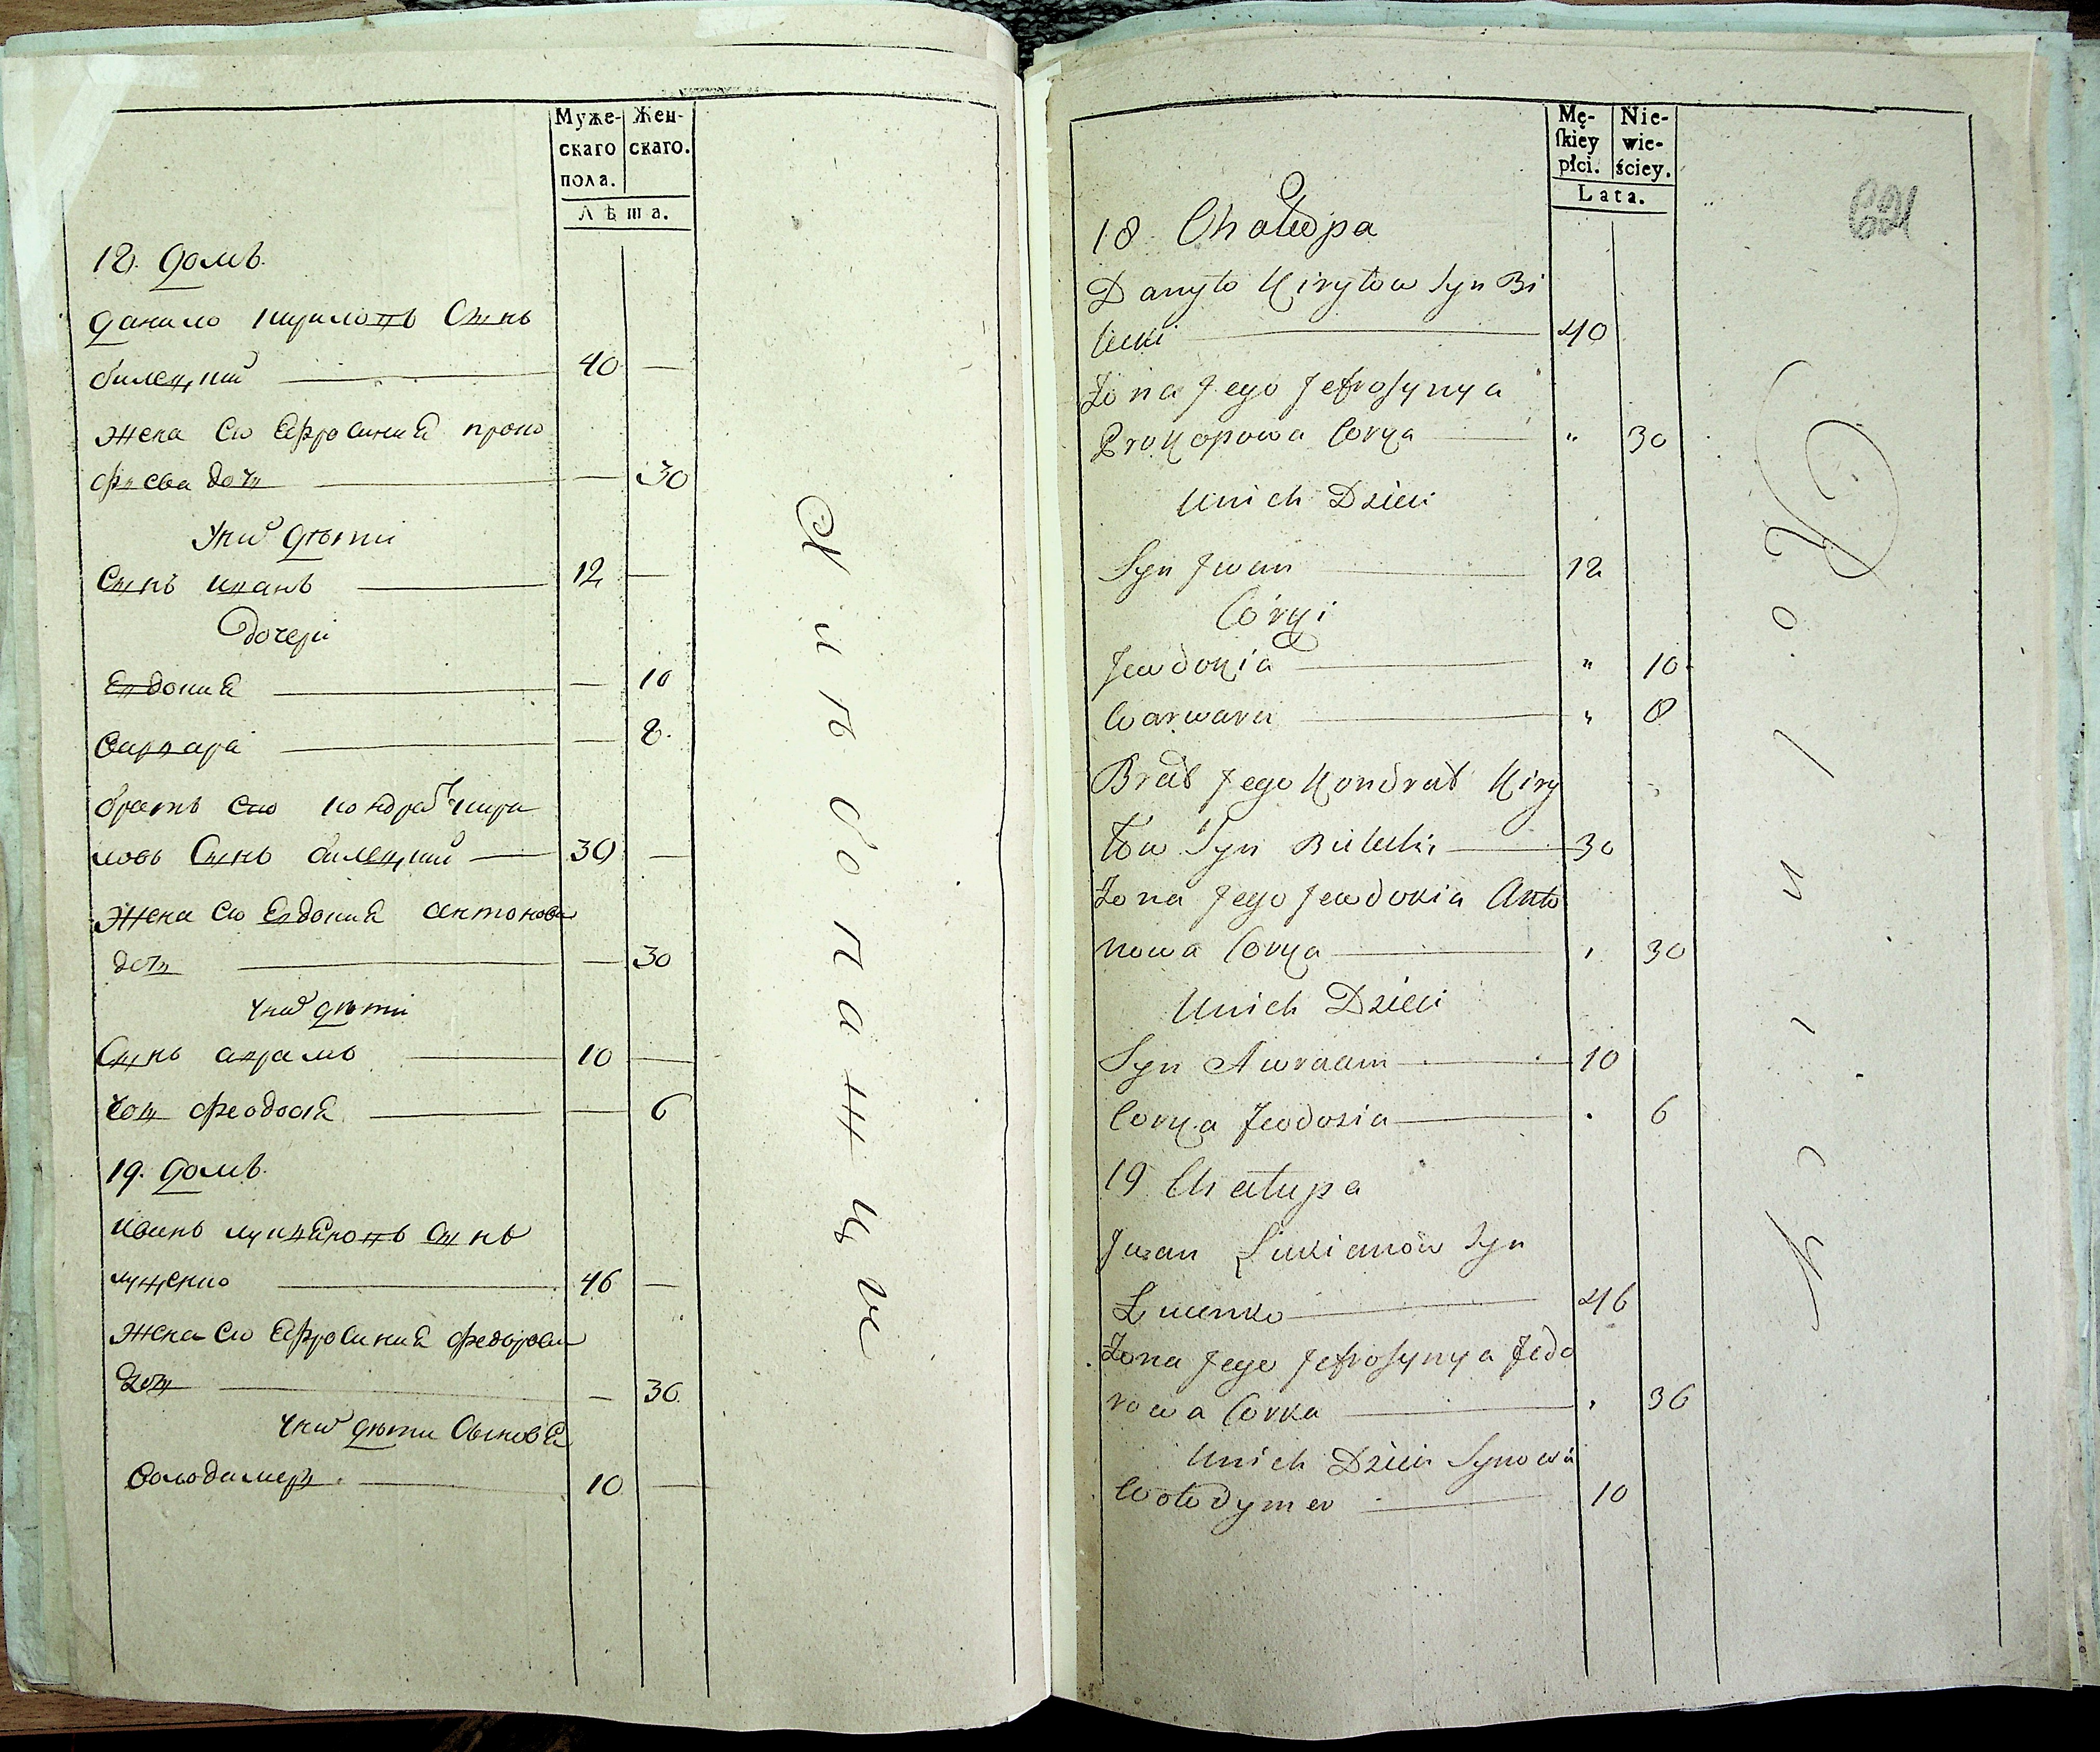 Муже-
скаго
пола.
Жен-
скаго.
Лѣта.
18. домъ
данило кириловъ Сынъ
билецкий 40 —
жена его Ефросиния проко
фиева дочь — 30
У них дѣти
Сынъ иванъ 12 —
дочери
Евдокия — 10
варвара — 8.
братъ его кондратъ кири
ловъ Сынъ билецкий 30 —
жена его Евдокия антонова
дочь — 30
У них дѣти
Сынъ аврамъ 10 —
дочь феодосия — 6
19. домъ
иванъ лукьяновъ Сынъ
луценко 46 —
жена его Ефросиния федорова
дочь — 36
У них дѣти Сыновья
володимеръ 10 —
Mę-
skiey
płci.
Nie-
wie-
ściey.
Lata.
621
18 Chałupa
Danyło Kiryłow Syn Bi
lecki 40
Żona Jego Jefrosynya
Prokopowa Corka " 30
Unich Dzieci
Syn Jwan 12
Córki
Jewdokia " 10
Warwara " 8
Brat Jego Kondrat Kiry
łow Syn Bielecki 30
Żona Jego Jewdokia Anto
nowa Corka " 30
Unich Dzieci
Syn Awraam 10
Corka Feodosia . 6
19 Chałupa
Jwan Łukianow Syn
Łucenko 46
Żona Jego Jefrosynya Fedo
rowa Corka " 36
Unich Dzieci Synowia
Wołodymer 10